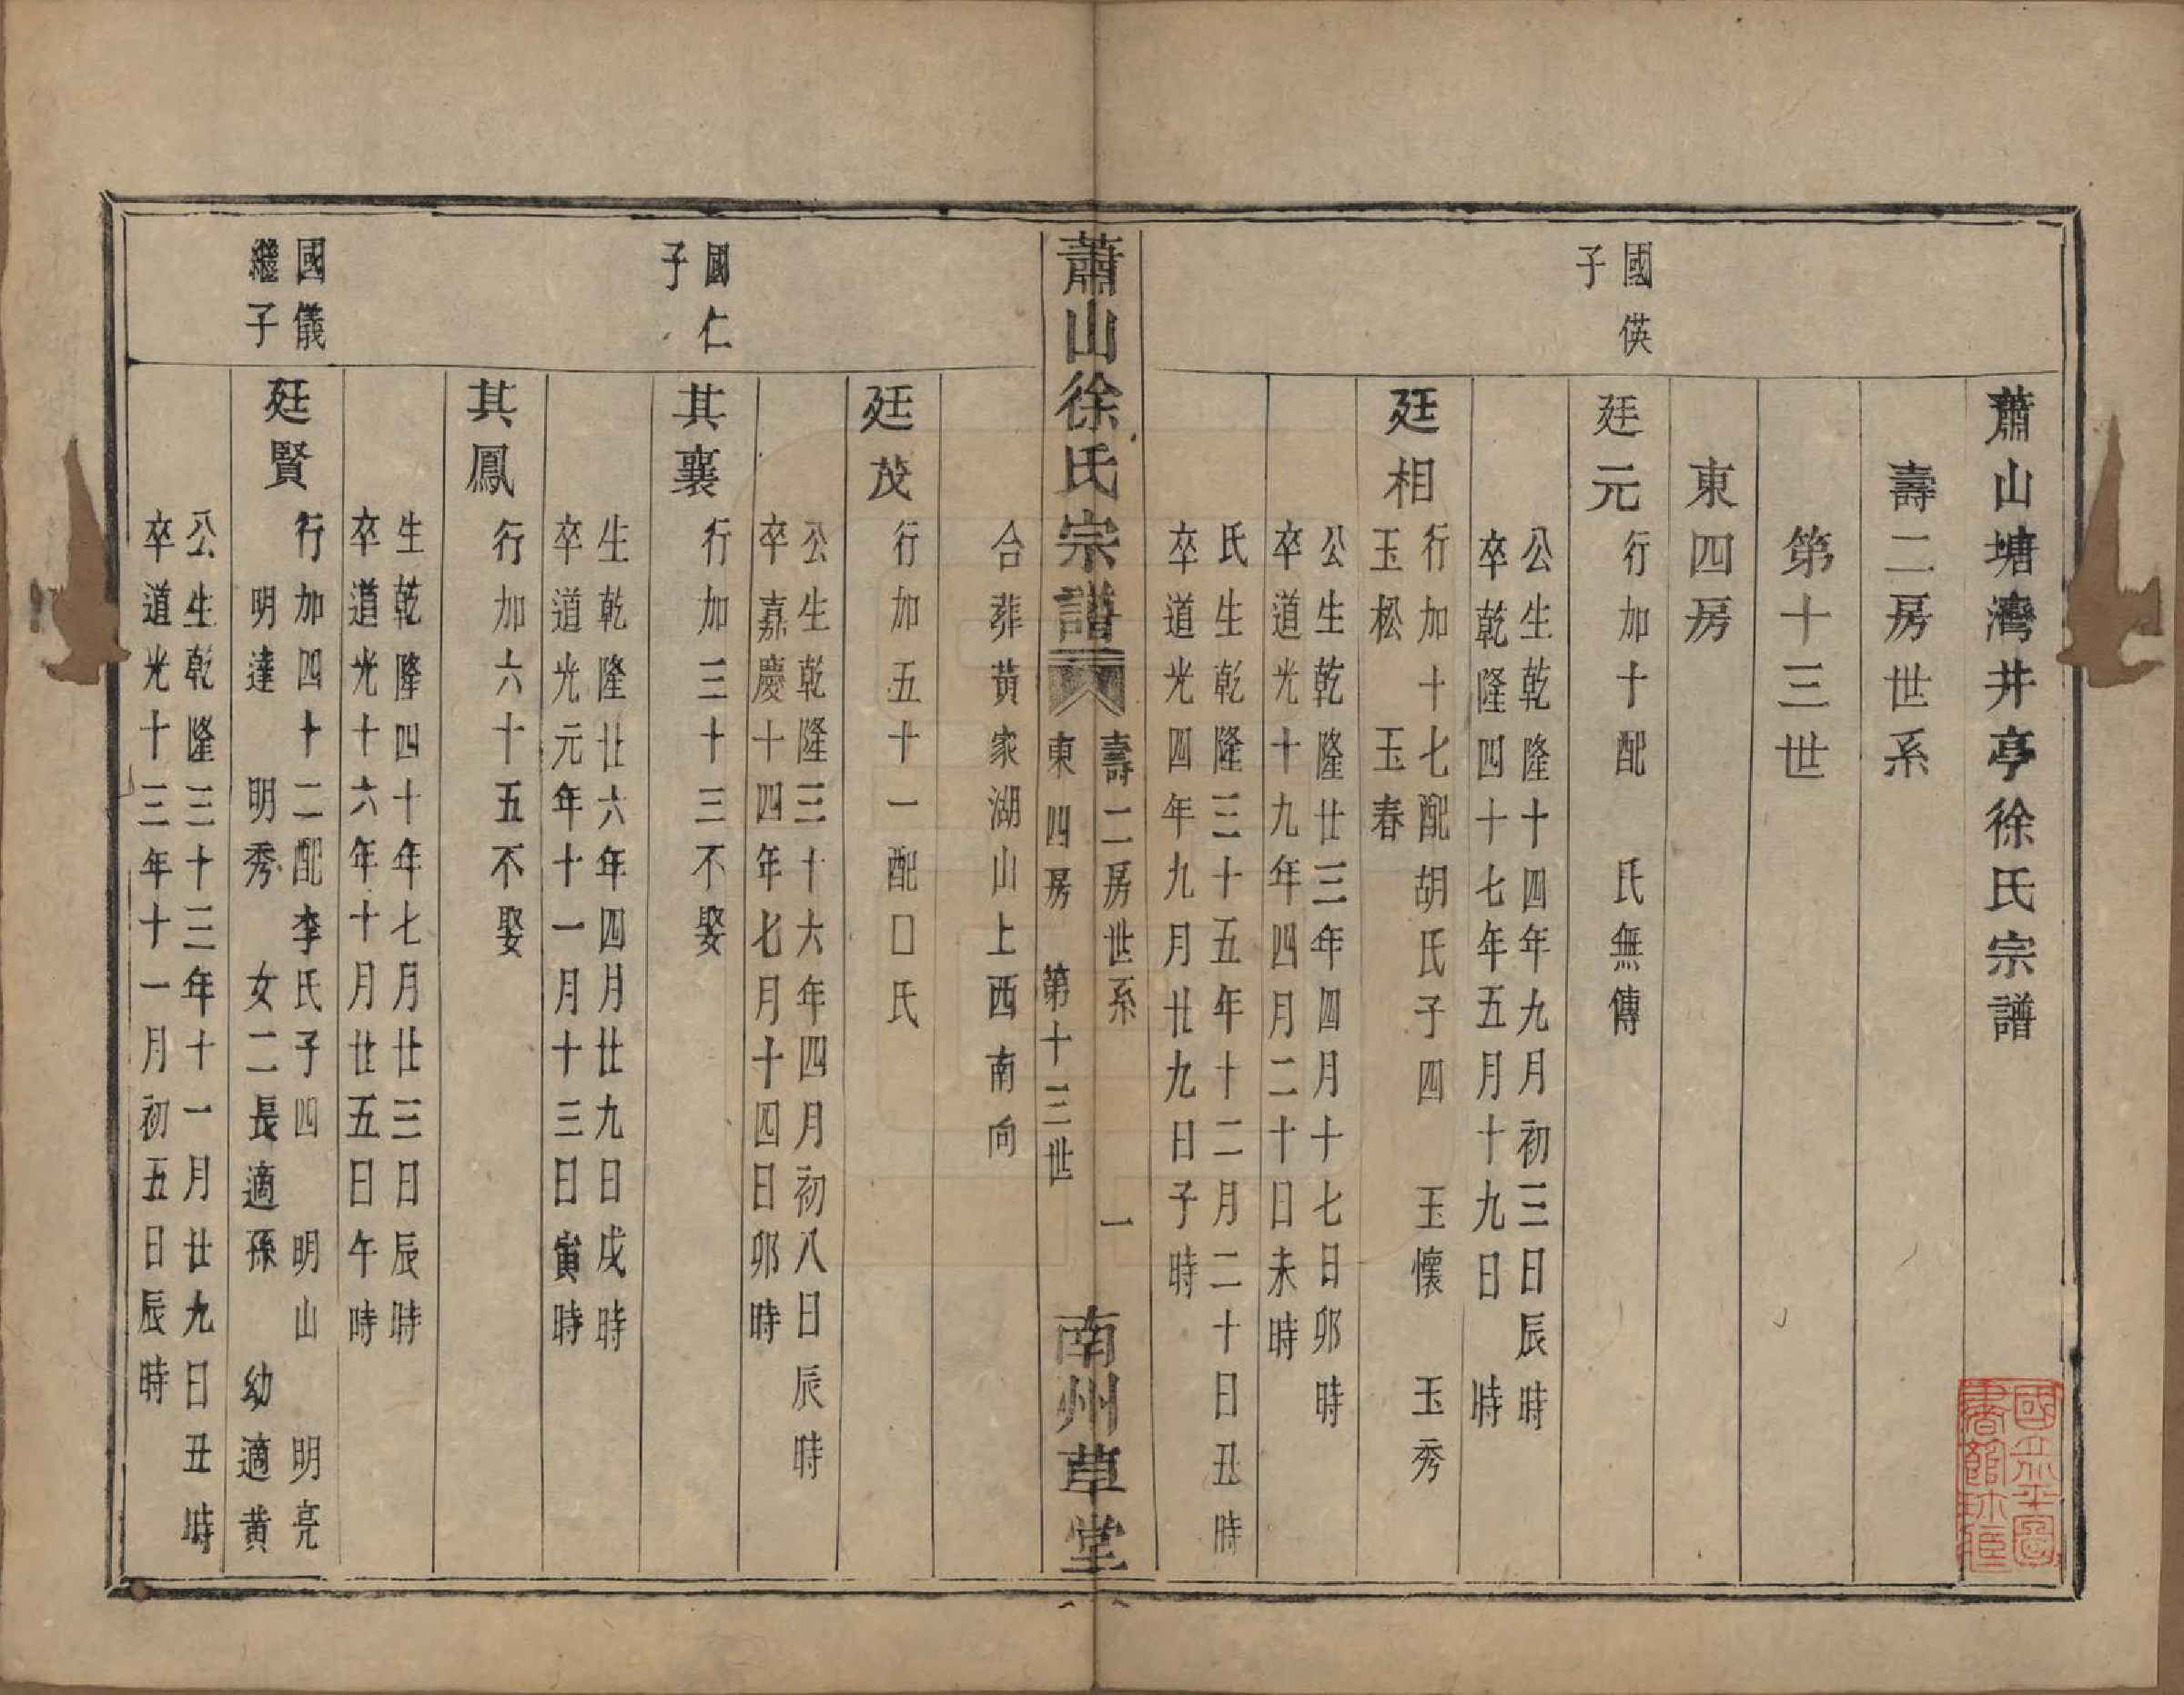 蕭山塘灣井亭徐氏宗譜
壽二房世系
第十三世
東四房
國僙
子
廷元
行加十配　氏無傳
公生乾隆十四年九月初三日辰時
卒乾隆四十七年五月十九日　時
廷相
行加十七配胡氏子四　玉懷　玉秀
玉松　玉春
公生乾隆廿三年四月十七日卯時
卒道光十九年四月二十日未時
氏生乾隆三十五年十二月二十日丑時
卒道光四年九月廿九日子時
蕭山徐氏宗譜
壽二房世系　一
東四房　第十三世
南州草堂
合葬黃家湖山上西南向
廷茂
行加五十一配口氏
公生乾隆三十六年四月初八日辰時
卒嘉慶十四年七月十四日卯時
國仁
子
其襄
行加三十三不娶
生乾隆廿六年四月廿九日戌時
卒道光元年十一月十三日寅時
其鳳
行加六十五不娶
生乾隆四十年七月廿三日辰時
卒道光十六年十月廿五日午時
國儀
繼子
廷賢
行加四十二配李氏子四　明山　明亮
明達　明秀　女二長適孫　幼適黃
公生乾隆三十三年十一月廿九日丑時
卒道光十三年十一月初五日辰時
國立北平圖
書館珍藏